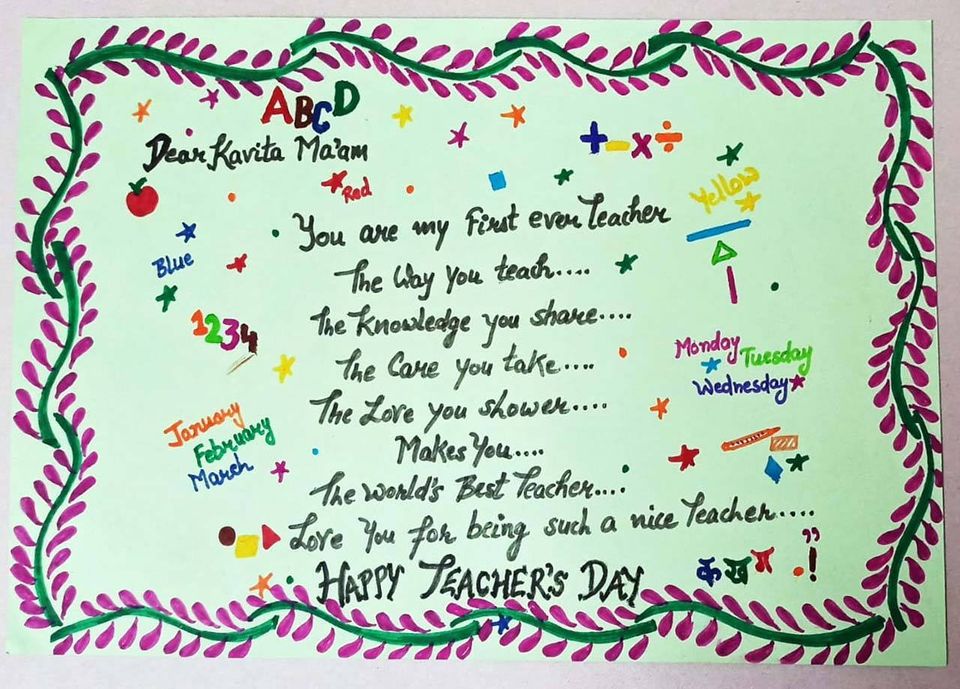 ABCD
Dear Kavita Ma'am
+ - x ÷
Red
Yellow
You are my First ever Teacher
Blue
The Way you teach....
1234
The Knowledge you share....
Monday
Tuesday
Wednesday
The Care you take....
The Love you shower....
January
February
March
Makes You....
The World's Best Teacher....
Love You for being such a nice Teacher....
क ख ग
" !
HAPPY TEACHER'S DAY